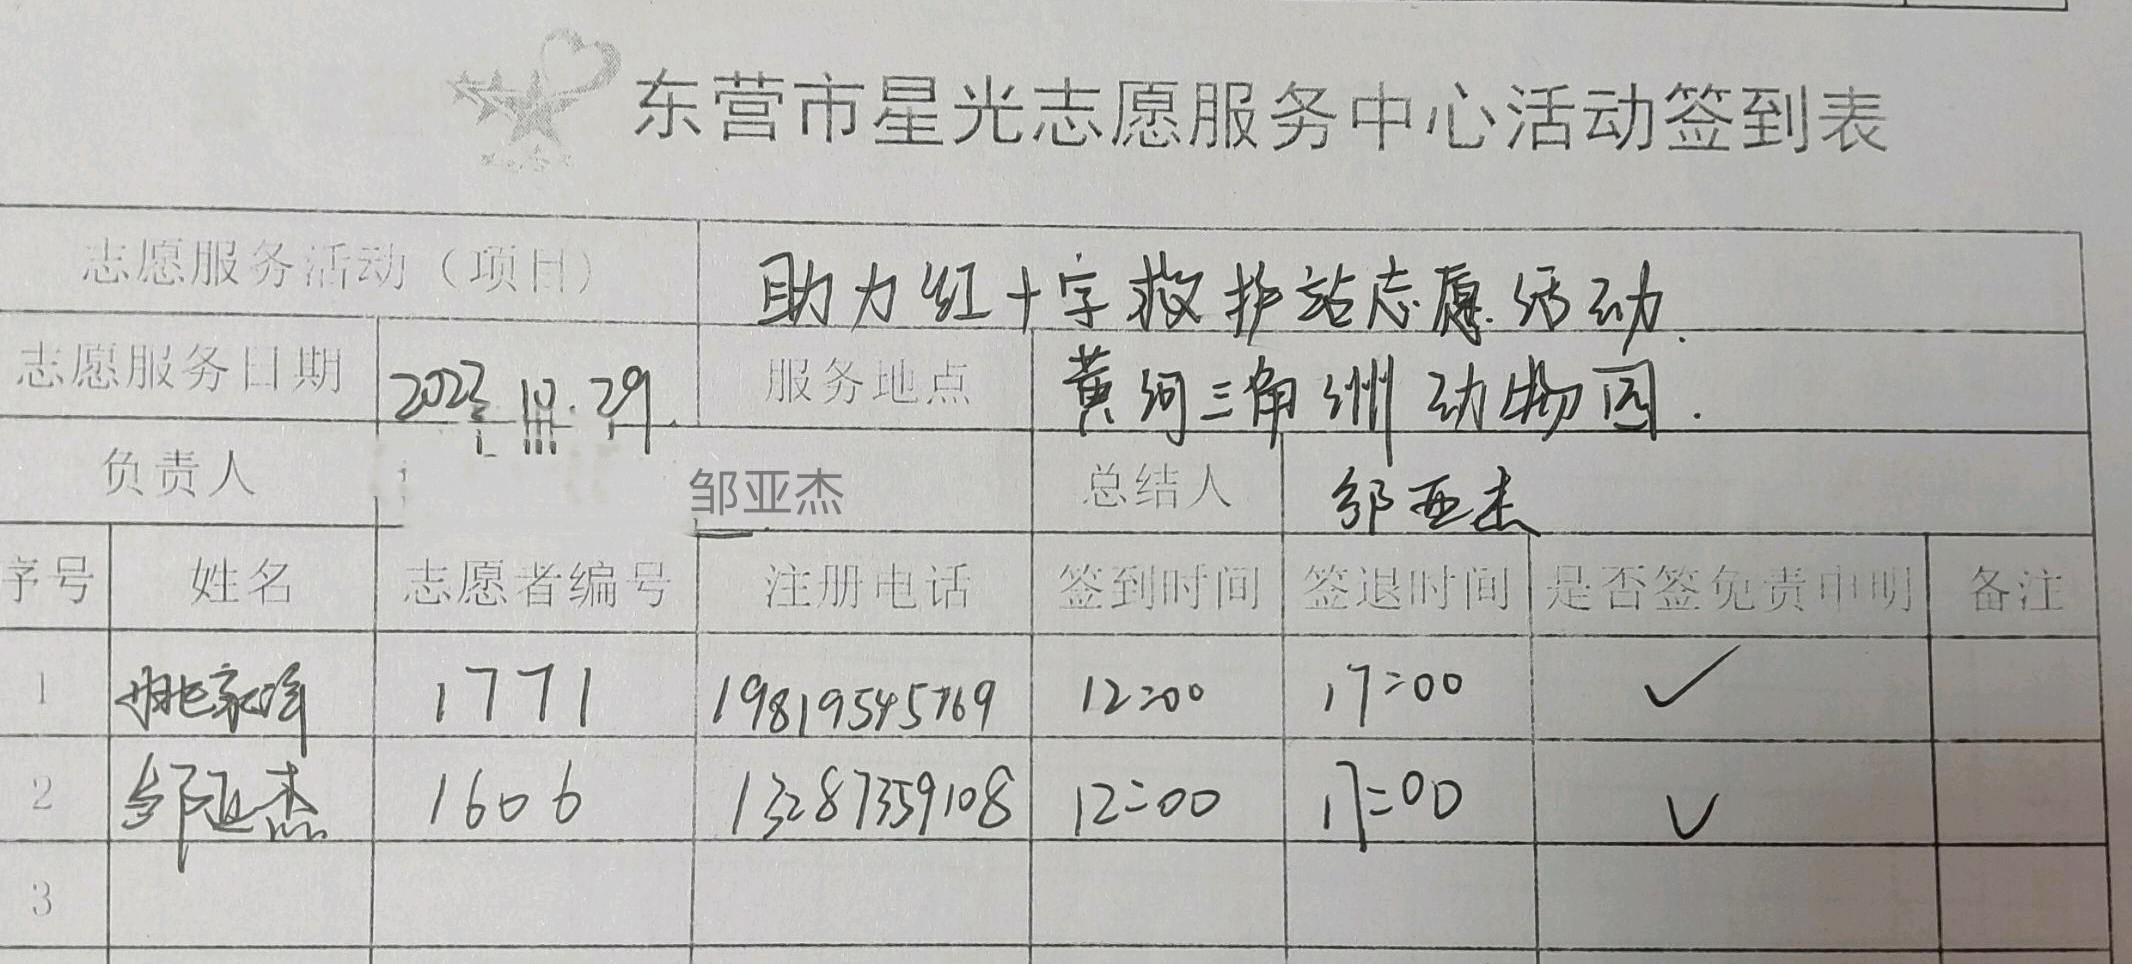 东营市星光志愿服务中心活动签到表
志愿服务活动（项目） 助力红十字救护站志愿活动.
志愿服务日期 2023.10.29. 服务地点 黄河三角洲动物园.
负责人 邹亚杰 总结人 邹亚杰
序号 姓名 志愿者编号 注册电话 签到时间 签退时间 是否签免责申明 备注
1 姚 1771 19819545769 12:00 17:00 ✓
2 邹亚杰 1606 13287359108 12:00 17:00 ✓
3